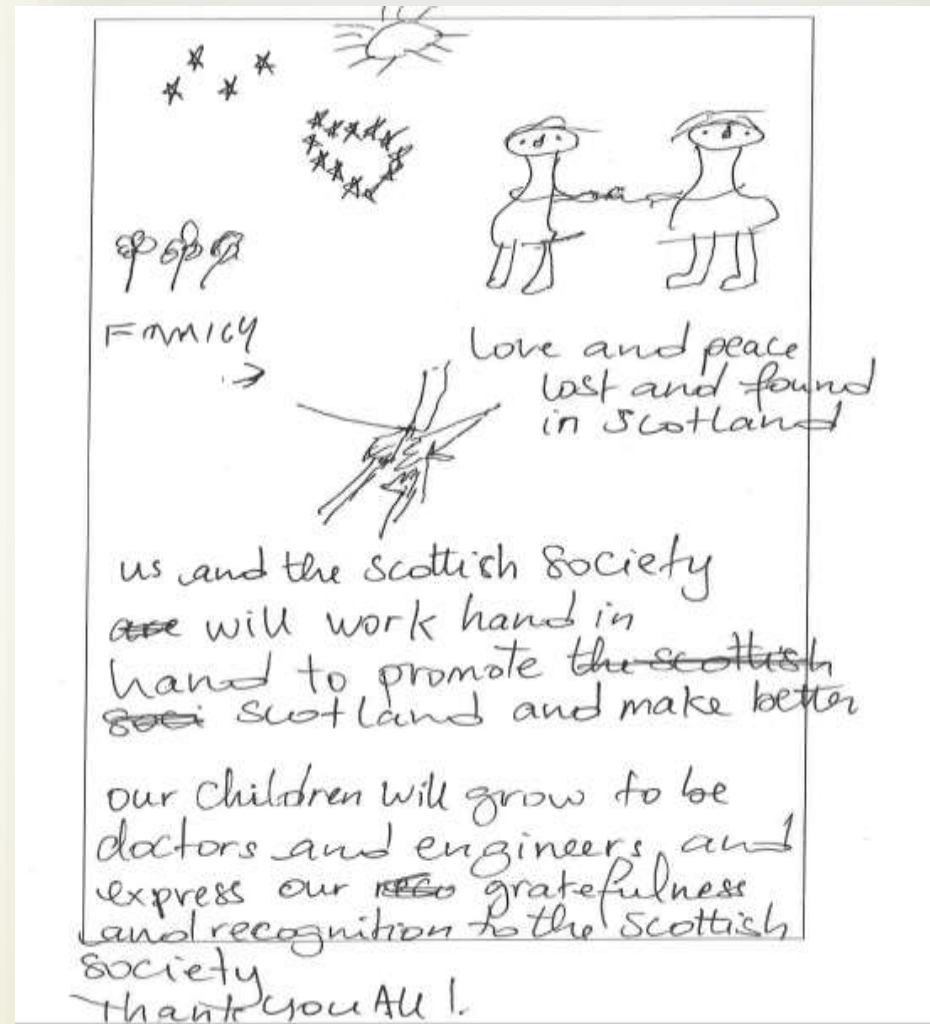 FAMILY
love and peace
lost and found
in Scotland
us and the scottish society
are will work hand in
hand to promote the scottish
soci Scotland and make better
our children will grow to be
doctors and engineers, and
express our reco gratefulness
and recognition to the Scottish
society
Thank you All!